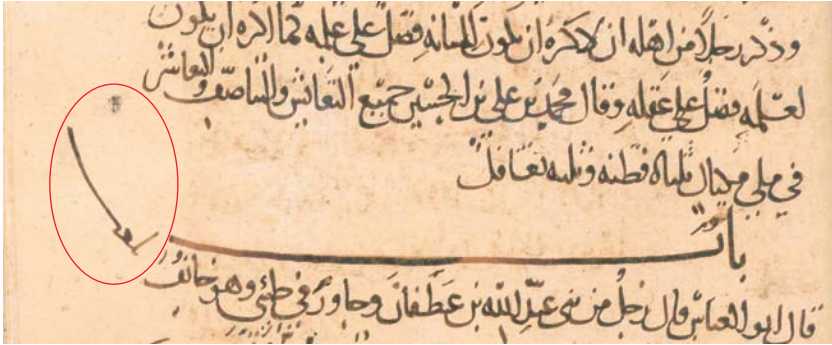 وذكر رجلًا من اهله انى لاكره ان يكون للسانه فضل على علمه كما اكره ان يكون
لعلمه فضلٌ على عقله وقال محمد بن على بن الحسين جميع التعايش والتناصف والتعاشر
فى ملء مكيال ثلثاه فطنه وثلثه تغافل
باب
قال ابو العباس قال رجلٌ من بنى عبد الله بن غطفان وجاور فى طيئ وهو خائفٌ